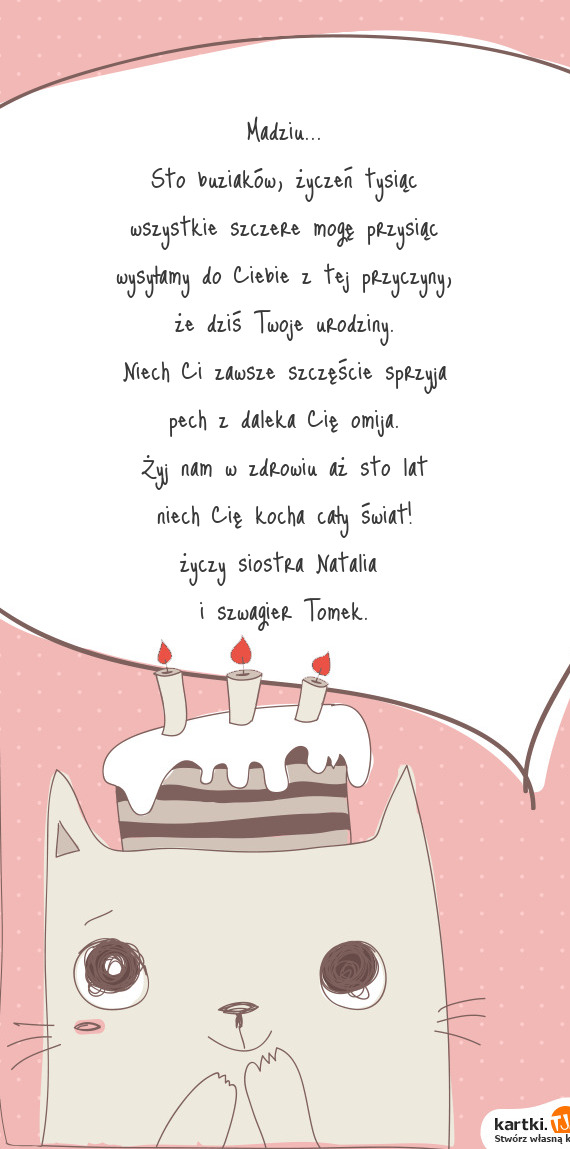 Madziu...
Sto buziaków, życzeń tysiąc
wszystkie szczere mogę przysiąc
wysyłamy do Ciebie z tej przyczyny,
że dziś Twoje urodziny.
Niech Ci zawsze szczęście sprzyja
pech z daleka Cię omija.
Żyj nam w zdrowiu aż sto lat
niech Cię kocha cały świat!
życzy siostra Natalia
i szwagier Tomek.
kartki.TJ
Stwórz własną k